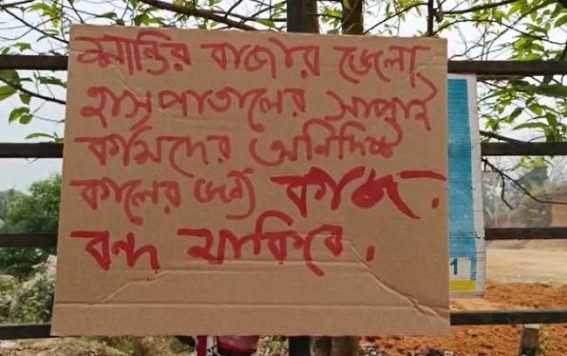 শান্তির বাজার জেলা
হাসপাতালের সাপ্লাই
কর্মিদের অনিদিষ্ট
কালের জন্য কাজ
বন্ধ থাকিবে।
1